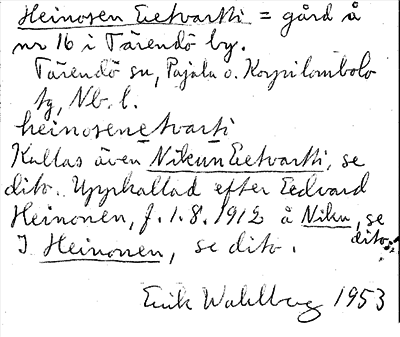 Heinosen Eetvartti = gård å
nr 16 i Tärendö by.
Tärendö sn, Pajala o. Korpilombolo
tg, Nb. l.
heinosenetvarti
Kallas även Nikun Eetvartti, se
dito. Uppkallad efter Eedvard
Heinonen, f. 1.8.1912 å Niku, se
dito.
I Heinonen, se dito.
Erik Wahlberg 1953